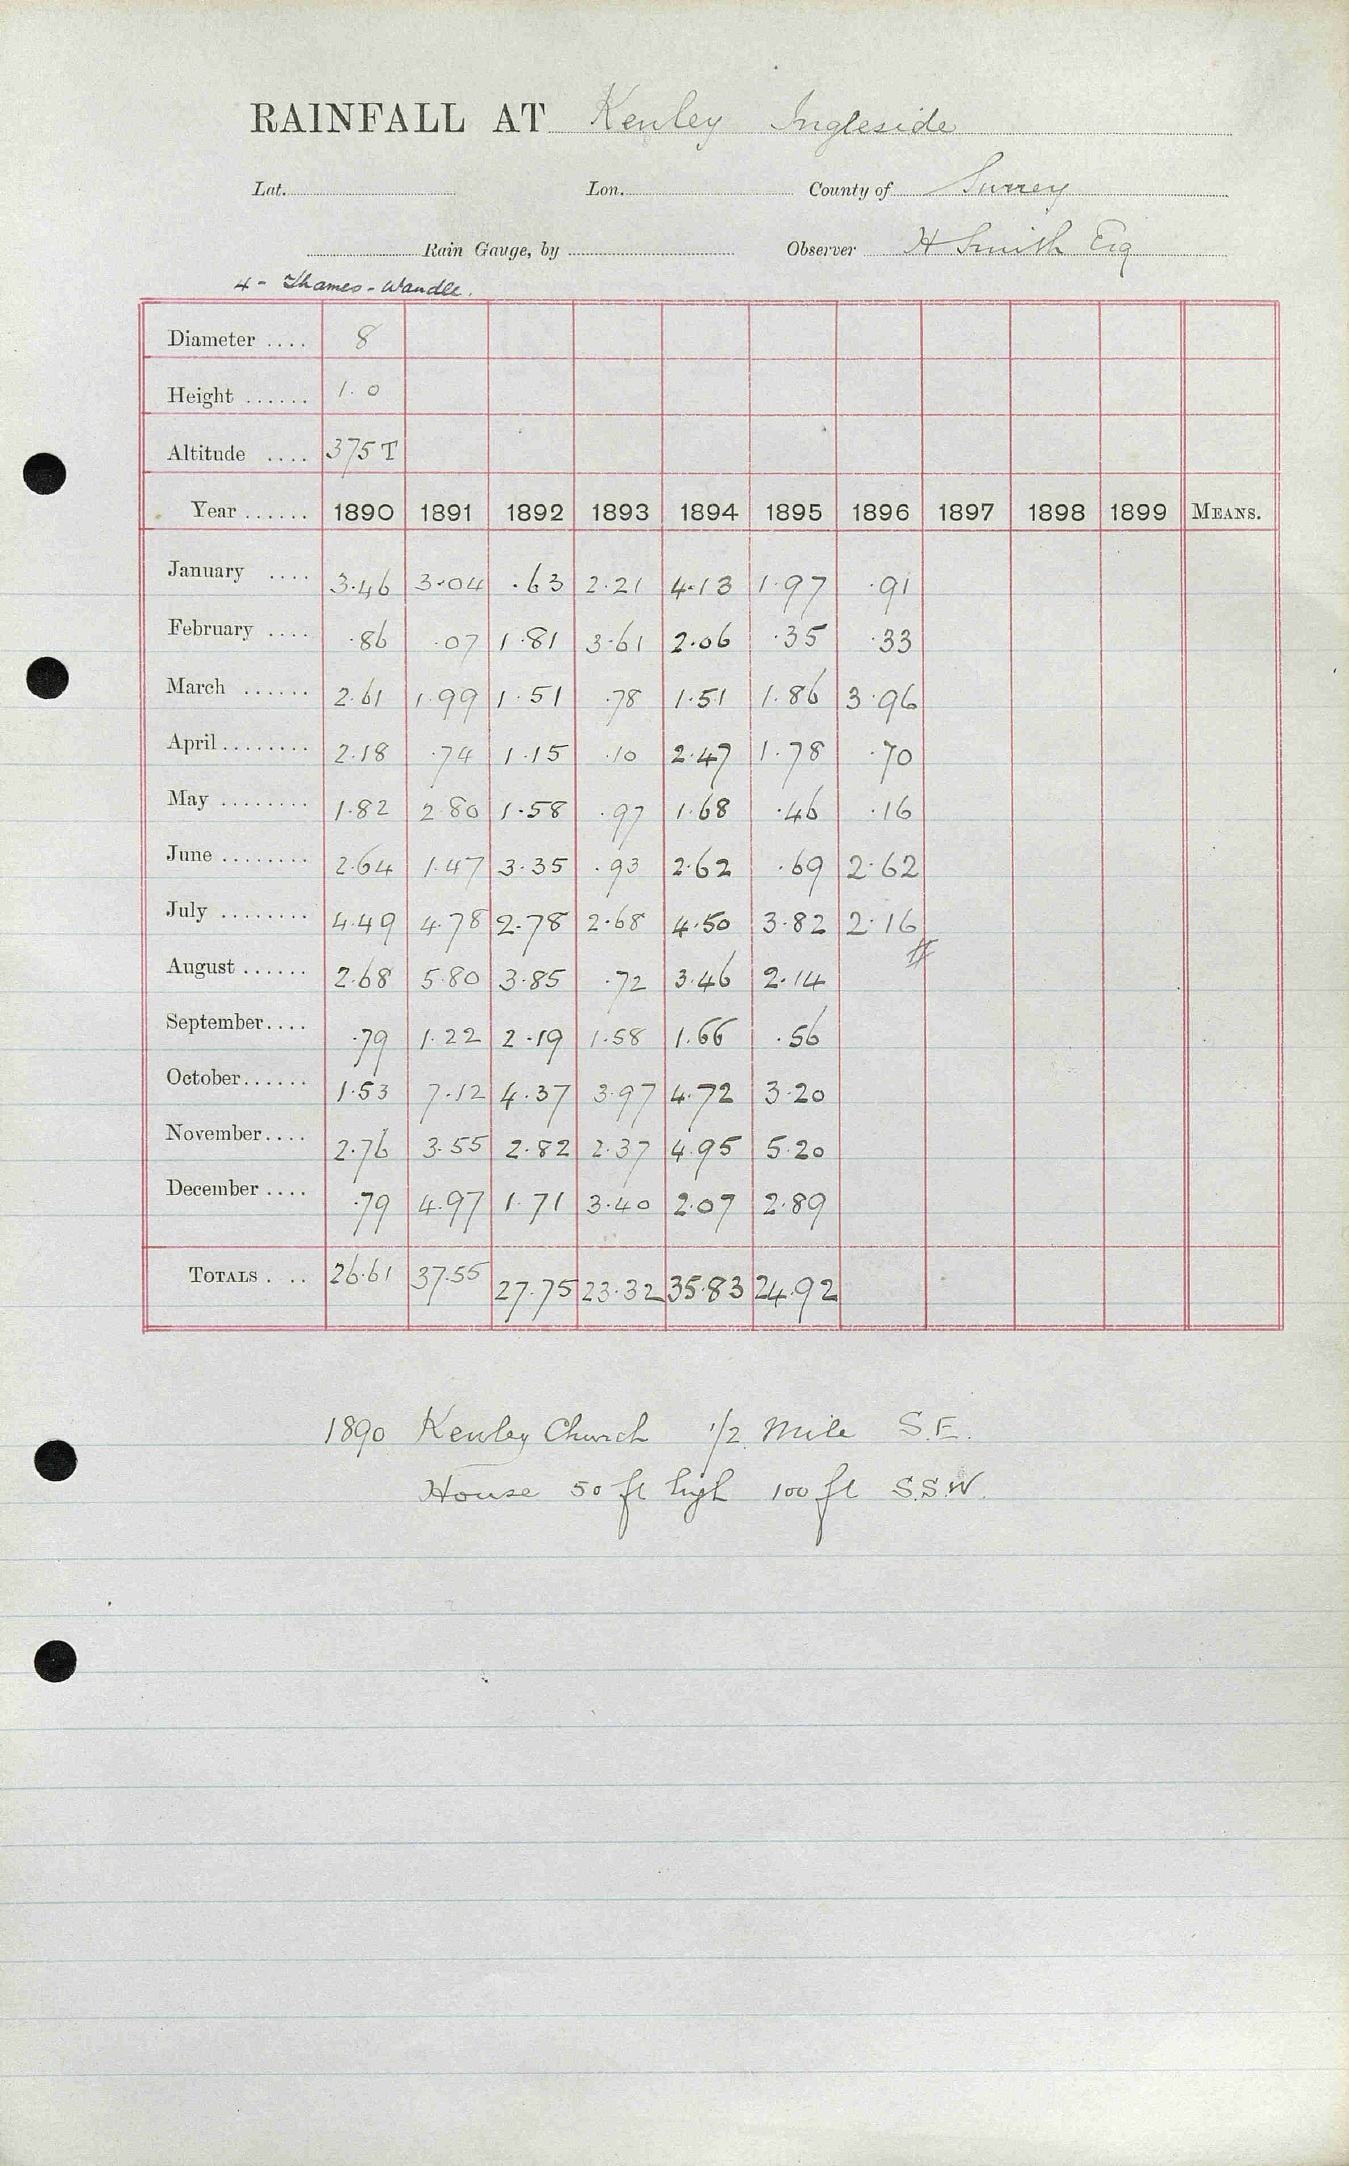 RAINFALL AT Kenley Ingleside
Lat. Lon. County of Surrey
Rain Gauge, by Observer H Smith Esq
4 - Thames - Wandle.
Diameter .... 8
Height ...... 1.0
Altitude .... 375 T
Year ...... 1890 1891 1892 1893 1894 1895 1896 1897 1898 1899 MEANS.
January .... 3.46 3.04 .63 2.21 4.13 1.97 .91
February .... .86 .07 1.81 3.61 2.06 .35 .33
March ...... 2.61 1.99 1.51 .78 1.51 1.86 3.96
April ........ 2.18 .74 1.15 .10 2.47 1.78 .70
May ........ 1.82 2.80 1.58 .97 1.68 .46 .16
June ........ 2.64 1.47 3.35 .93 2.62 .69 2.62
July ........ 4.49 4.78 2.78 2.68 4.50 3.82 2.16
August ...... 2.68 5.80 3.85 .72 3.46 2.14
September .... .79 1.22 2.19 1.58 1.66 .56
October ...... 1.53 7.12 4.37 3.97 4.72 3.20
November .... 2.76 3.55 2.82 2.37 4.95 5.20
December .... .79 4.97 1.71 3.40 2.07 2.89
TOTALS . .. 26.61 37.55 27.75 23.32 35.83 24.92
1890 Kenley Church 1/2 Mile S.E.
House 50 ft high 100 ft S.S.W.